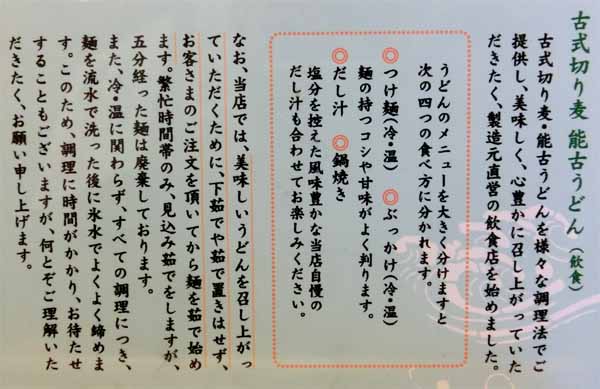 古式切り麦 能古うどん（飲食）
古式切り麦・能古うどんを様々な調理法でご
提供し、美味しく、心豊かに召し上がっていた
だきたく、製造元直営の飲食店を始めました。
うどんのメニューを大きく分けますと
次の四つの食べ方に分かれます。
◎つけ麵（冷・温） ◎ぶっかけ（冷・温）
麵の持つコシや甘味がよく判ります。
◎だし汁 ◎鍋焼き
塩分を控えた風味豊かな当店自慢の
だし汁も合わせてお楽しみください。
なお、当店では、美味しいうどんを召し上がっ
ていただくために、下茹でや茹で置きはせず、
お客さまのご注文を頂いてから麵を茹で始め
ます。繁忙時間帯のみ、見込み茹でをしますが、
五分経った麵は廃棄しております。
また、冷・温に関わらず、すべての調理につき、
麵を流水で洗った後に氷水でよくよく締めま
す。このため、調理に時間がかかり、お待たせ
することもございますが、何とぞご理解いた
だきたく、お願い申し上げます。